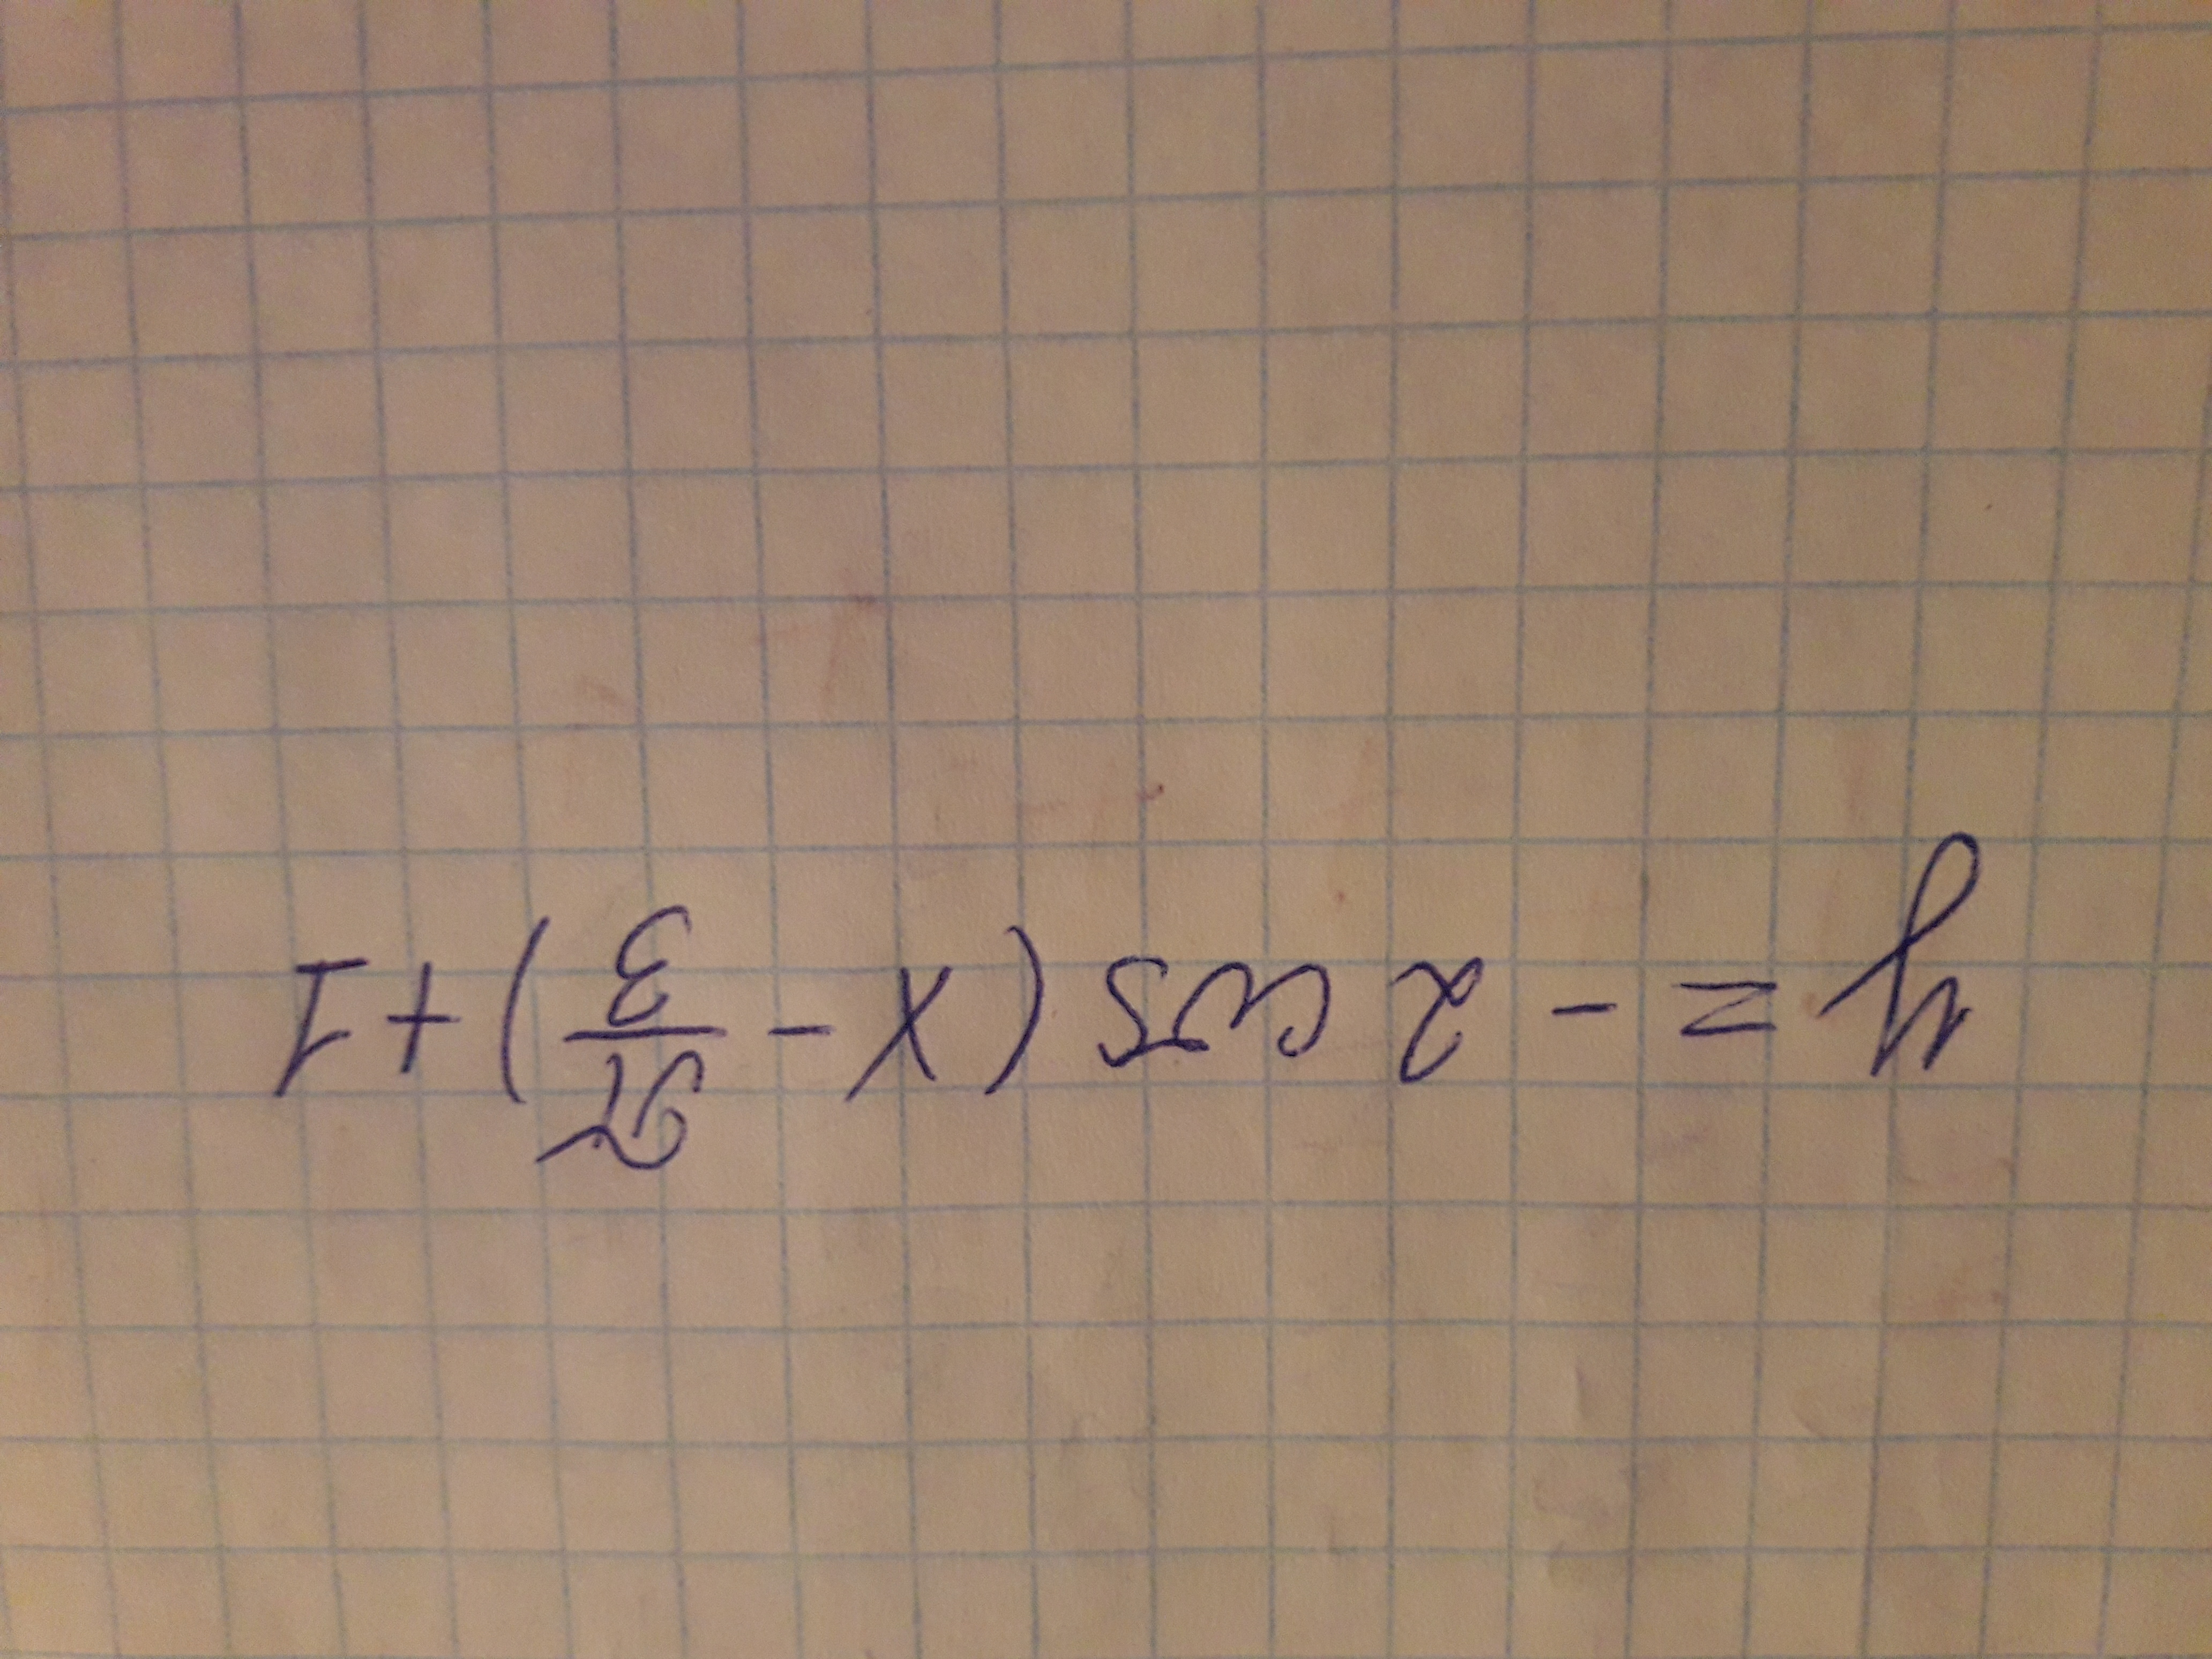 y = - 2 cos (x - π/3) + 1